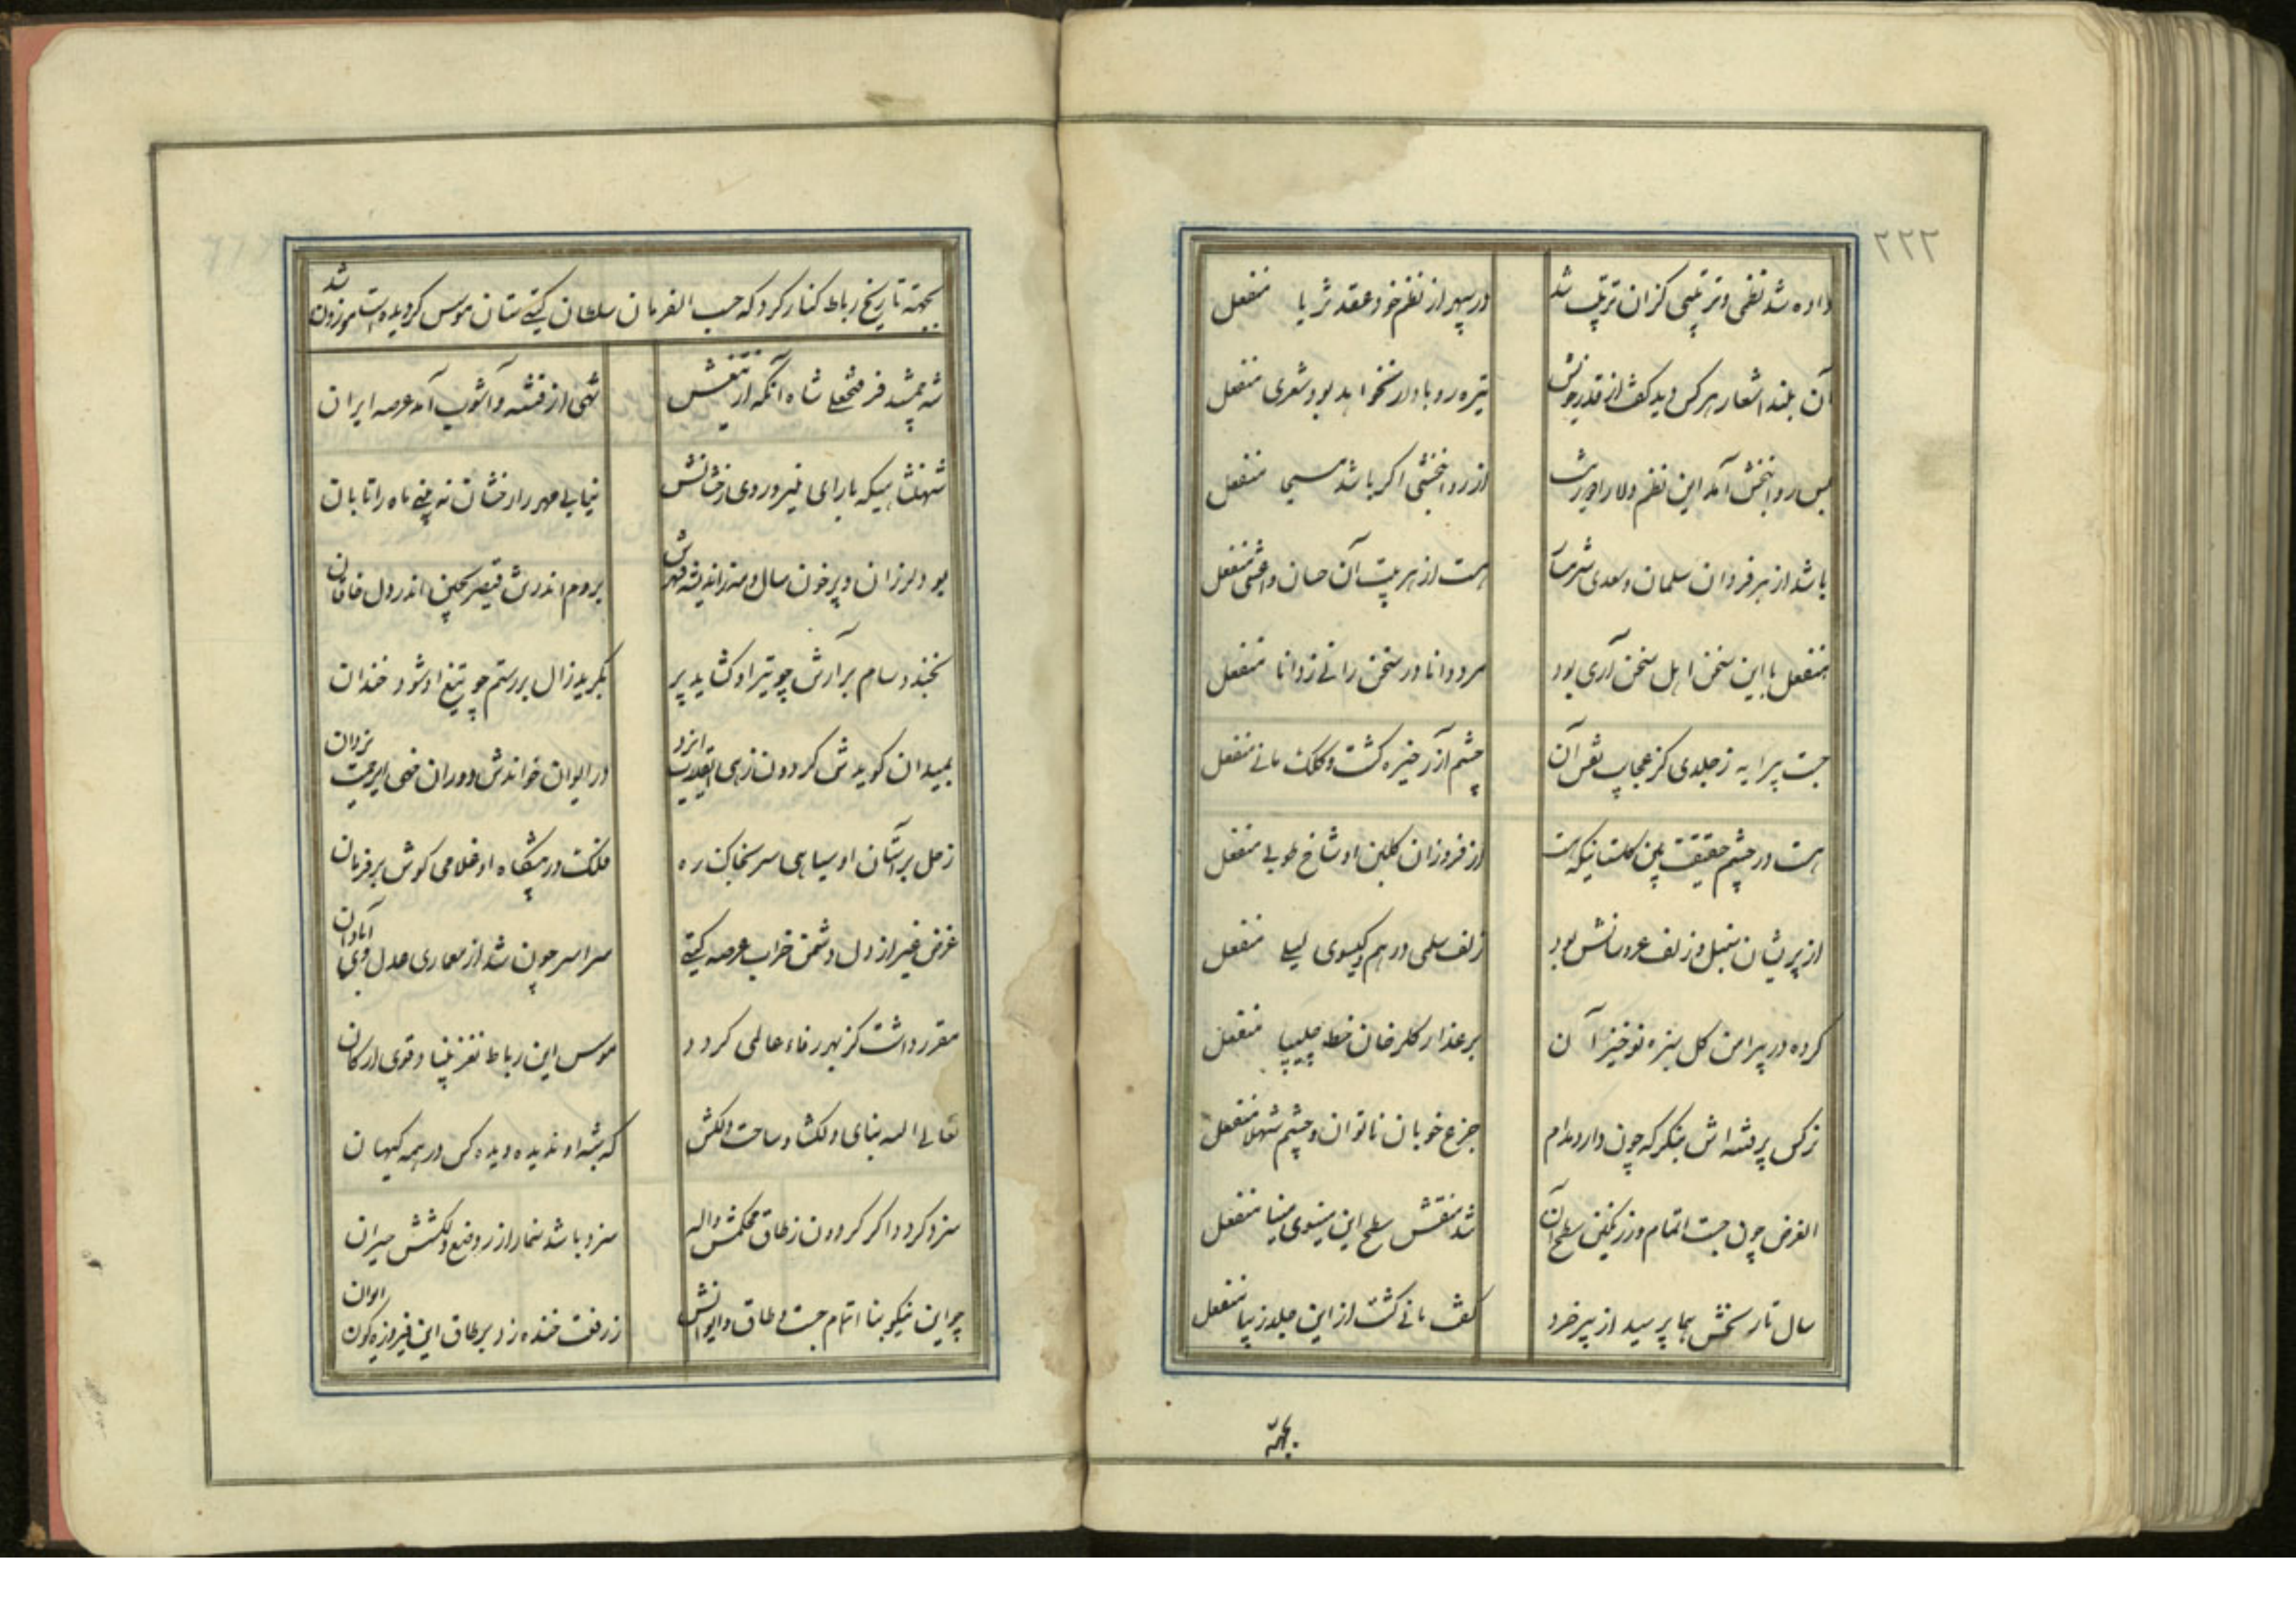 ۲۲۲
داده شد نظمی و ترتیبی کزان ترتیب شد
در سپهر از نظم خود عقد ثریا منفعل
آن بلند اشعار هرکس دید کفت از قدر خویش
تیره رو باد ار نخواهد بود شعری منفعل
بس روانبخش آمد این نظم
از روانبخشی اکر باشد مسیحا منفعل
باشد از هر فرد آن سلمان و سعدی شرمسار
هست از هر بیت آن حسان و اعشی منفعل
منفعل با این سخن اهل سخن آری بود
مرد دانا در سخن رانی ز دانا منفعل
جست پیرایه ز جلدی کز عجایب نقش آن
چشم آزر خیره کشت و کلک مانی منفعل
هست در چشم حقیقت بین کلستانیکه هست
از فروزان کلبن او شاخ طوبی منفعل
از پریشان سنبل و زلف عروسانش بود
زلف سلمی درهم و کیسوی لیلی منفعل
کرده در پیرامن کل سبزه نوخیز آن
بر عذار کلرخان خط چلیپا منفعل
نرکس پرفتنه اش بنکر که چون دارد مدام
جزع خوبان ناتوان و چشم شهلا منفعل
الغرض چون جست اتمام و ز رنکین سطح آن
شد منقش سطح این مینوی مینا منفعل
سال تاریخش هما پرسید از پیر خرد
کفت مانی کشت از این جلد زیبا منفعل
بجهة
بجهة تاریخ رباط کنار کرد که حسب الفرمان سلطان کیتی ستان موسس کردیده است موزون شد
شه جمشید فر فتحعلی شاه آنکه از تیغش
تهی از فتنه و آشوب آمد عرصه ایران
شهنشاهیکه با رای منیر و روی رخشانش
نیابی مهر را رخشان نه بینی ماه را تابان
بود لرزان و پرخون سال و مه ز اندیشه قهرش
بروم اندر تن قیصر بچین اندر دل خاقان
بخندد سام بر آرش چو تیر او کشاید پر
بکرید زال بر رستم چو تیغ او شود خندان
بمیدان کویدش کردون زهی اقتدارت ایزد
در ایوان خواندش دوران خهی یزدان
زحل بر آستان او سیاهی سر بخاک ره
فلک در پیشکاه او غلامی کوش بر فرمان
غرض غیر از دل دشمن خراب عرصه کیتی
سراسر چون شد از معماری عدل وی آبادان
مقرر داشت کز بهر رفاه عالمی کردد
موسس این رباط نغز بنیاد قوی ارکان
تعالی الله بنای دلکشا و ساحت دلکش
که شبه او ندیده دیده کس در همه کیهان
سزد کردد اکر کردون ز طاق محکمش واله
سزد باشد سنمار از وضع دلکشش حیران
چو این نیکو بنا اتمام جست و طاق و ایوانش
ز رفعت خنده زد بر طاق این فیروزه کون ایوان